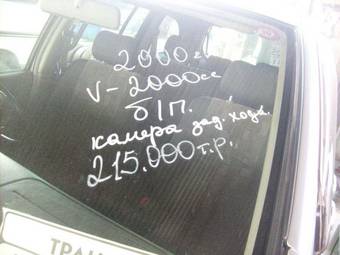 2000г
V-2000сс
б/п.
камера зад. хода.
215.000т.р.
ТРАН